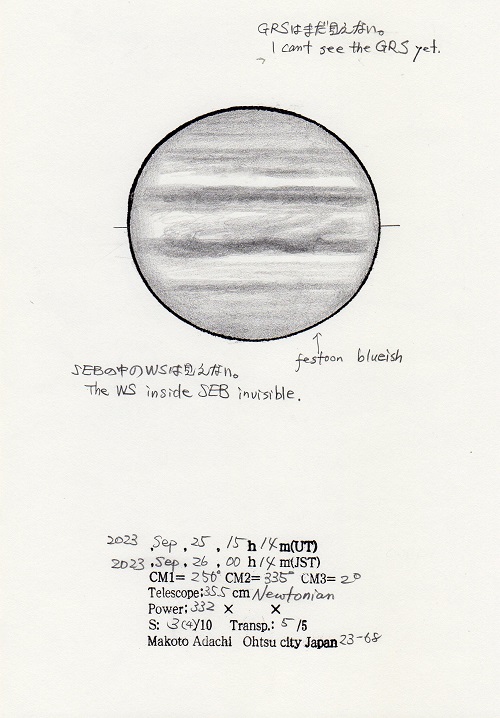 GRSはまだ見えない。
I cant see the GRS yet.
festoon blueish
SEBの中のWSは見えない。
The WS inside SEB invisible.
2023 .Sep . 25 . 15 h 14 m(UT)
2023 .Sep . 26 . 00 h 14 m(JST)
CM1= 256° CM2= 335° CM3= 2°
Telescope:355 cm Newtonian
Power: 332 × ×
S: 3(4)/10 Transp.: 5 /5
Makoto Adachi Ohtsu city Japan 23-68